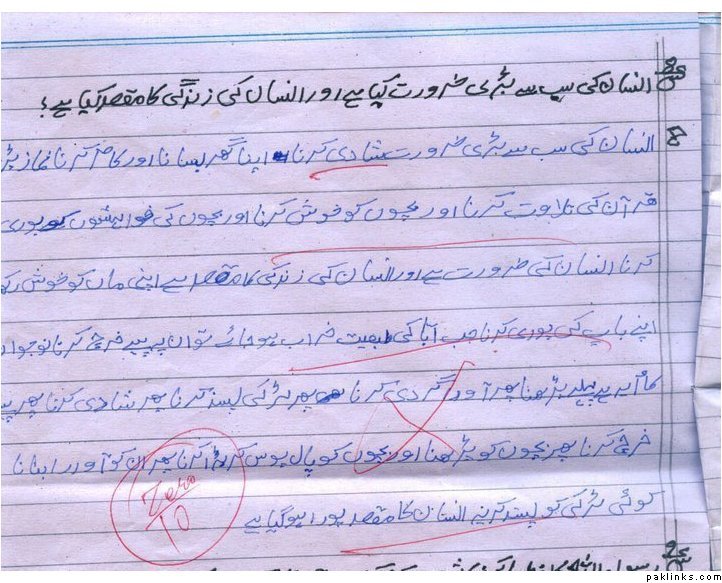 س انسان کی سب سے بڑی ضرورت کیا ہے اور انسان کی زندگی کا مقصد کیا ہے؟
ج انسان کی سب سے بڑی ضرورت شادی کرنا اپنا گھر بسانا اور کام کرنا نماز پڑ
قرآن کی تلاوت کرنا اور بچوں کو خوش کرنا اور بچوں کی خواہشوں کو پوری
کرنا انسان کی ضرورت ہے اور انسان کی زندگی کا مقصد ہے اپنی ماں کو خوش رکھ
اپنے باپ کی پوری کرنا جب ابا کی طبعیت خراب ہو جائے تو ان پر پیسے خرچ کرنا نوجوان
کا پہلے پڑھنا پھر آوراگردی کرنا پھر لڑکی پسند کرنا پھر شادی کرنا پھر پی
خرچ کرنا پھر بچوں کو پڑھنا اور بچوں کو پال پوس کر بڑا کرنا پھر ان کو آور
کوئی لڑکی کو پسند کرنے انسان کا مقصد پورا ہو گیا ہے
Zero
10
س رسول اللہ
paklinks.com